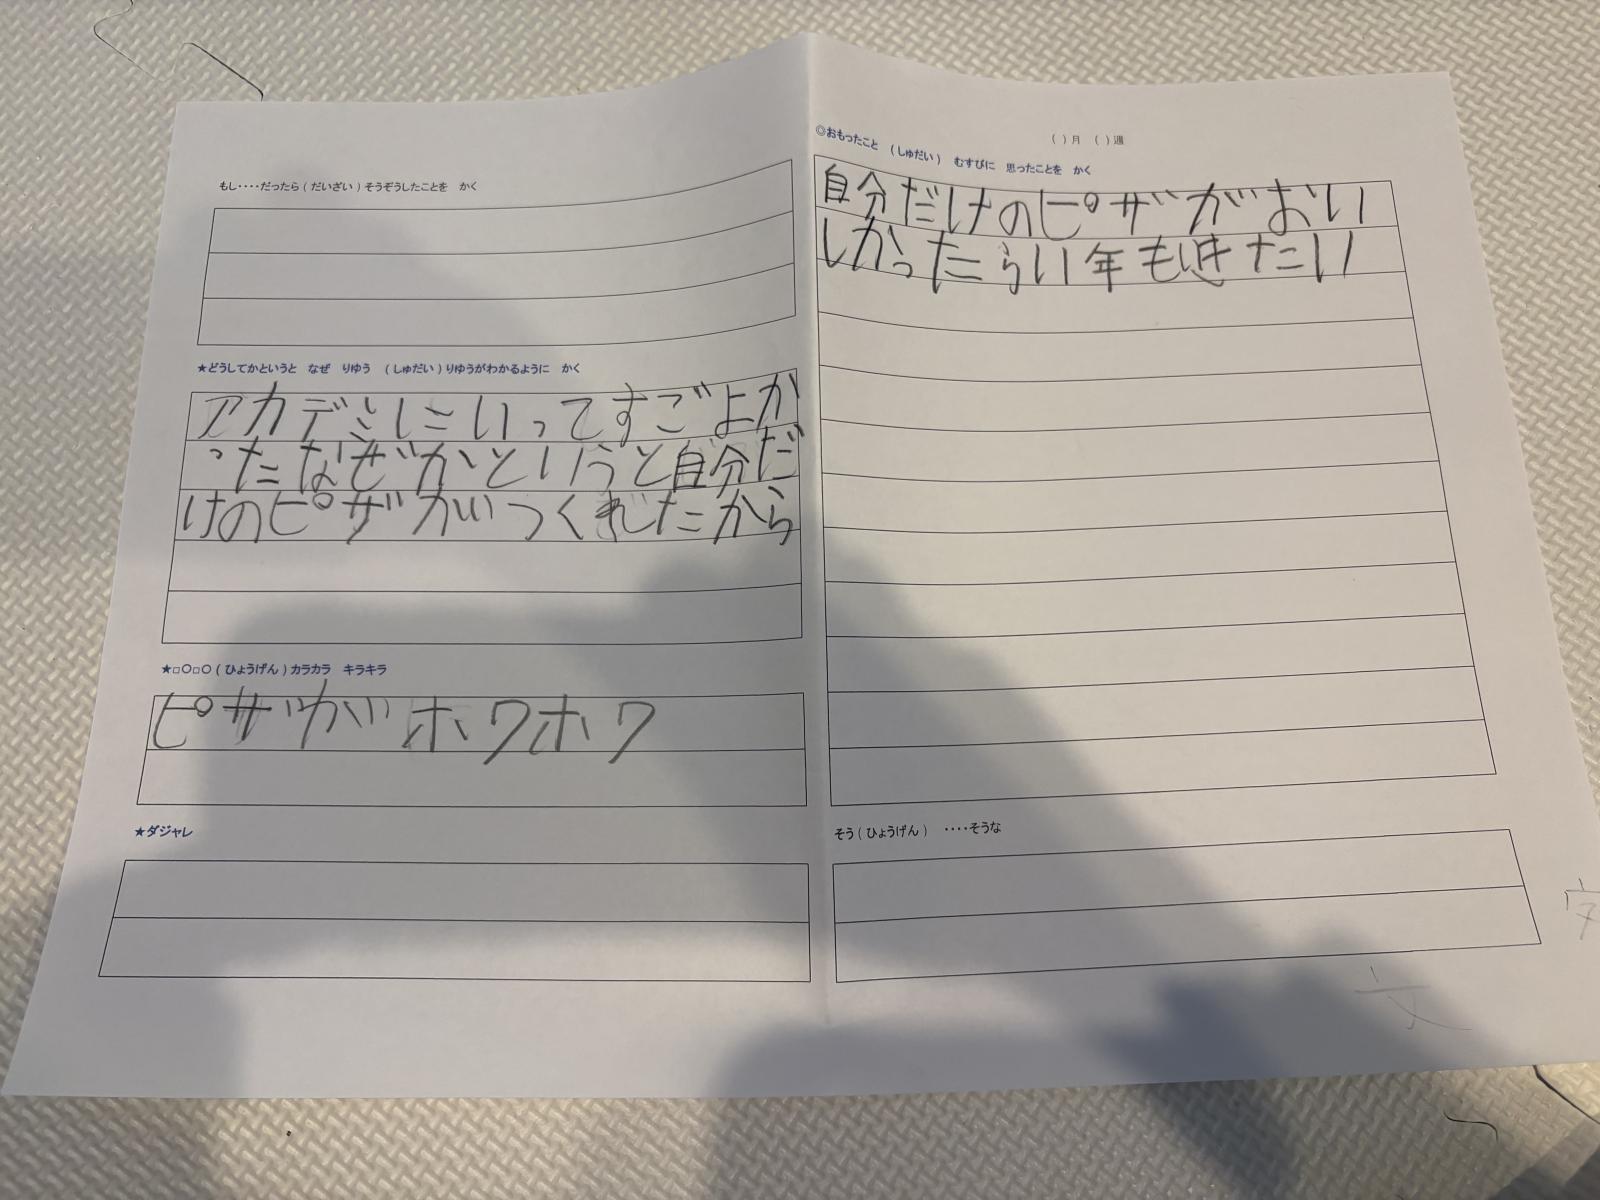 もし････だったら（だいざい）そうぞうしたことを　かく
★どうしてかというと　なぜ　りゆう　（しゅだい）りゆうがわかるように　かく
アカデミーにいってすごよか
ったなぜかというと自分だ
けのピザがつくれたから
★□〇□〇（ひょうげん）カラカラ　キラキラ
ピザがホワホワ
★ダジャレ
（ ）月　（ ）週
◎おもったこと　（しゅだい）　むすびに　思ったことを　かく
自分だけのピザがおい
しかったらい年も行きたい
そう（ひょうげん）　････そうな
字
文